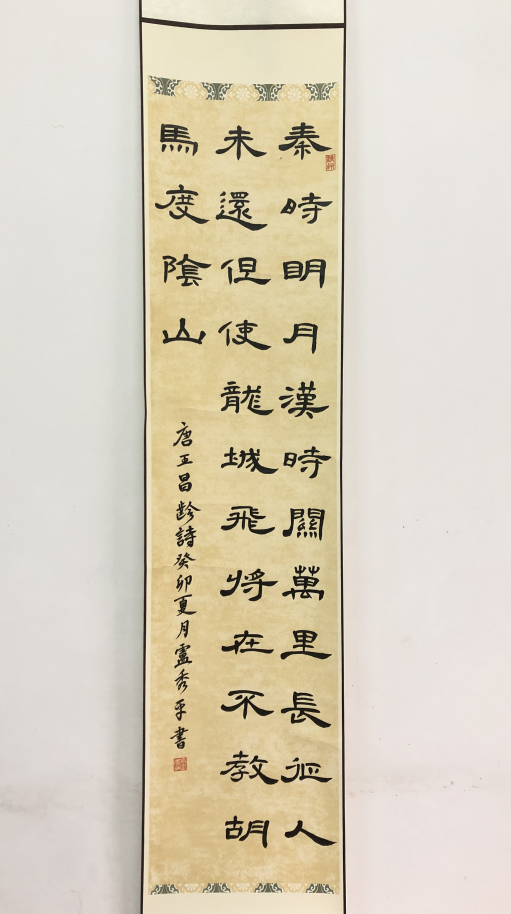 秦時明月漢時關萬里長征人
未還但使龍城飛將在不教胡
馬度陰山
唐王昌齡詩癸卯夏月盧秀平書